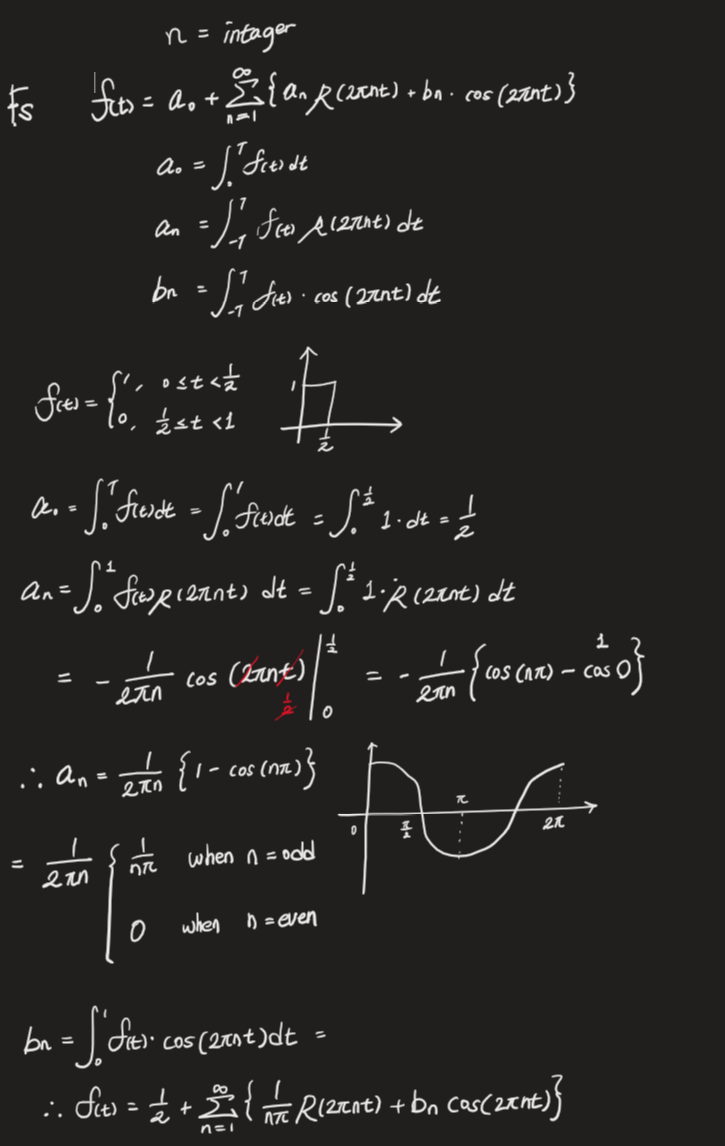 n = intager
Fs f(t) = a₀ + ∑_{n=1}^{∞} {aₙ R(2πnt) + bₙ · cos(2πnt)}
a₀ = ∫₀ᵀ f(t) dt
aₙ = ∫_{-T}^{T} f(t) R(2πnt) dt
bₙ = ∫_{-T}^{T} f(t) · cos(2πnt) dt
f(t) = { 1, 0 ≤ t < 1/2
0, 1/2 ≤ t < 1
1
1/2
a₀ = ∫₀ᵀ f(t)dt = ∫₀¹ f(t)dt = ∫₀^{1/2} 1·dt = 1/2
aₙ = ∫₀¹ f(t) R(2πnt) dt = ∫₀^{1/2} 1·R(2πnt) dt
= - 1/(2πn) cos (2πnt) |₀^{1/2} = - 1/(2πn) {cos(nπ) - cos 0}
1/2
1
∴ aₙ = 1/(2πn) {1 - cos(nπ)}
0 π/2 π 2π
= 1/(2πn) { 1/(nπ) when n = odd
0 when n = even
bₙ = ∫₀¹ f(t)· cos(2πnt)dt =
∴ f(t) = 1/2 + ∑_{n=1}^{∞} { 1/(nπ) R(2πnt) + bₙ cos(2πnt)}